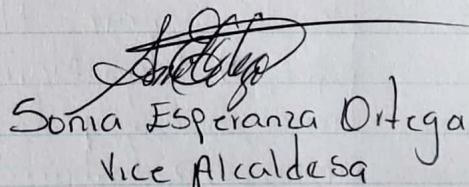 Sonia Esperanza Ortega
Vice Alcaldesa